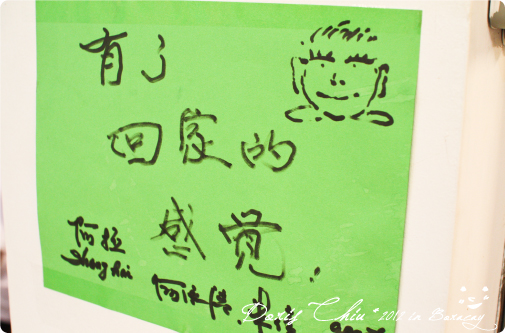 有了
回家的
感觉.
阿拉
Shang Hai
Doxis Chiu * 2012 in Boracay